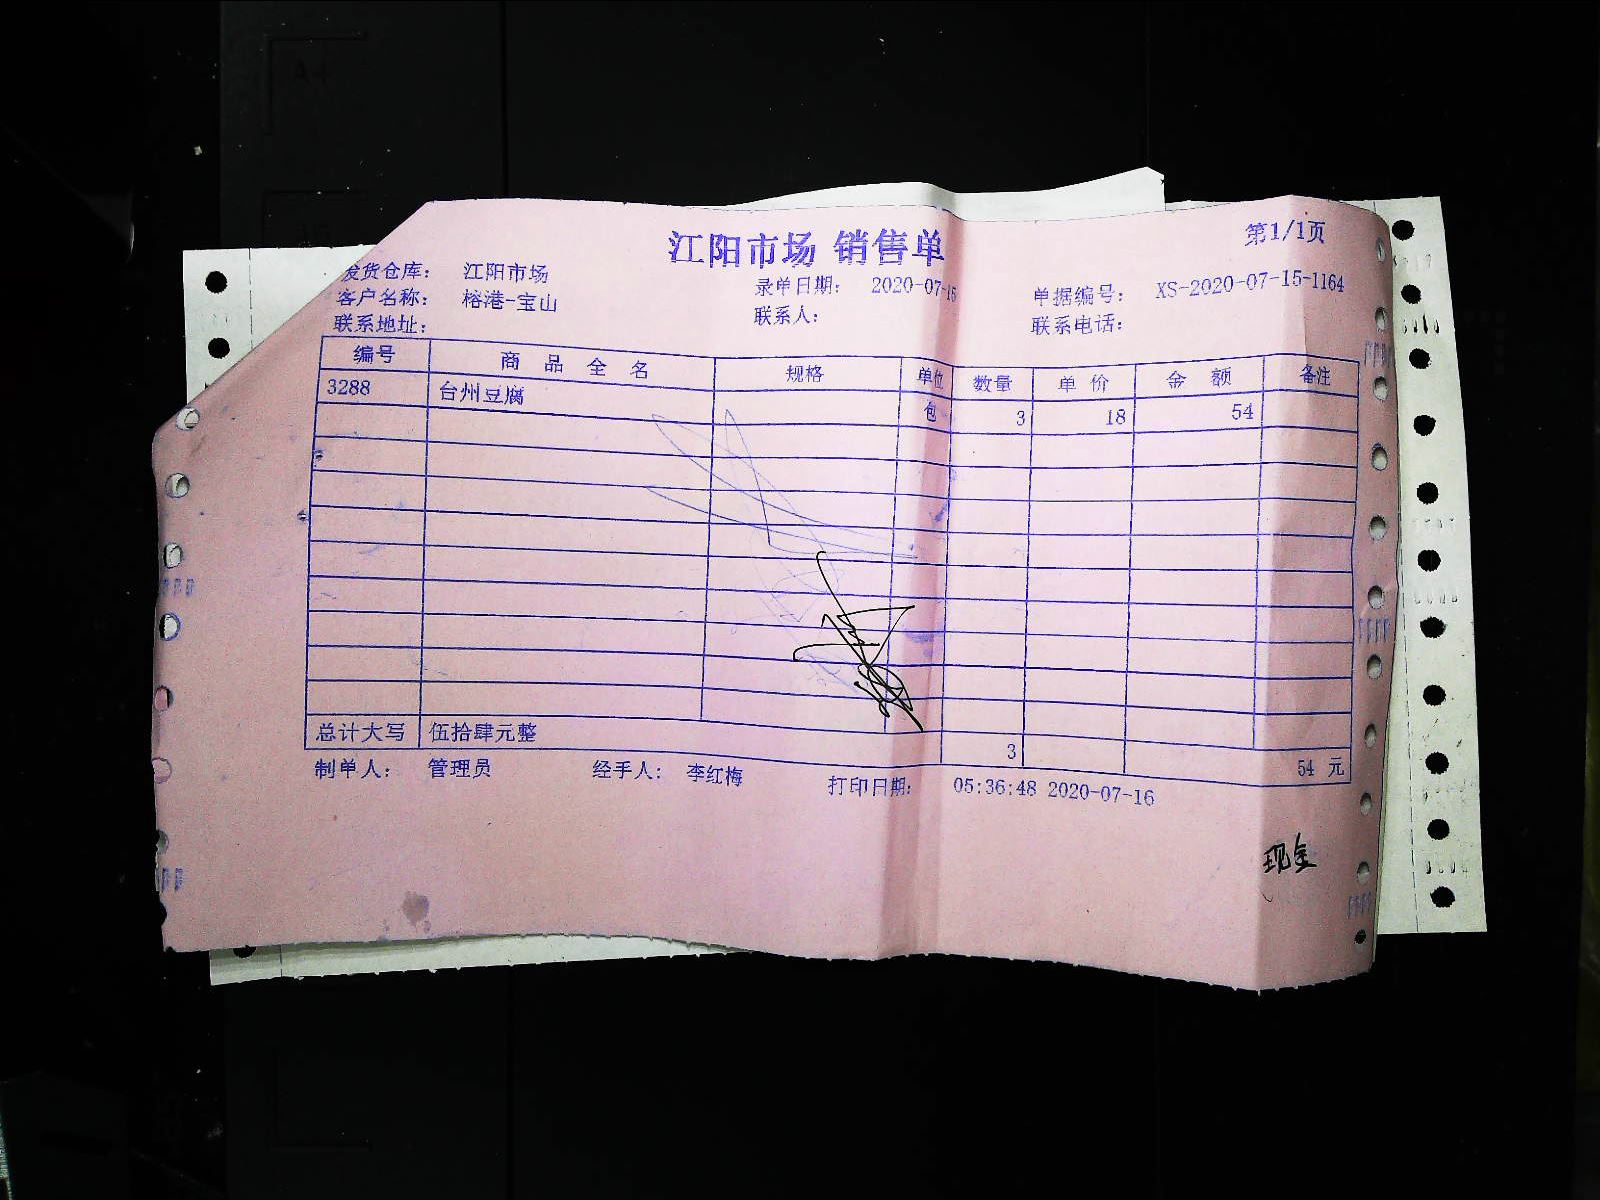 江阳市场 销售单
第1/1页
发货仓库: 江阳市场
录单日期: 2020-07-15
单据编号: XS-2020-07-15-1164
客户名称: 榕港-宝山
联系人:
联系电话:
联系地址:
编号 商品全名 规格 单位 数量 单价 金额 备注
3288 台州豆腐 包 3 18 54
总计大写 伍拾肆元整 3 54 元
制单人: 管理员 经手人: 李红梅 打印日期: 05:36:48 2020-07-16
现金